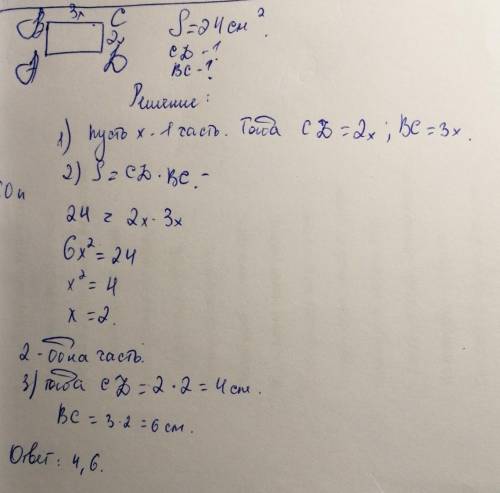 B 3x C
2x
A D
S = 24 см².
CD - ?
BC - ?
Решение:
1) Пусть x - 1 часть. Тогда CD = 2x ; BC = 3x.
2) S = CD · BC. -
24 = 2x · 3x
6x² = 24
x² = 4
x = 2.
2 - одна часть.
3) тогда CD = 2 · 2 = 4 см.
BC = 3 · 2 = 6 см.
Ответ: 4, 6.